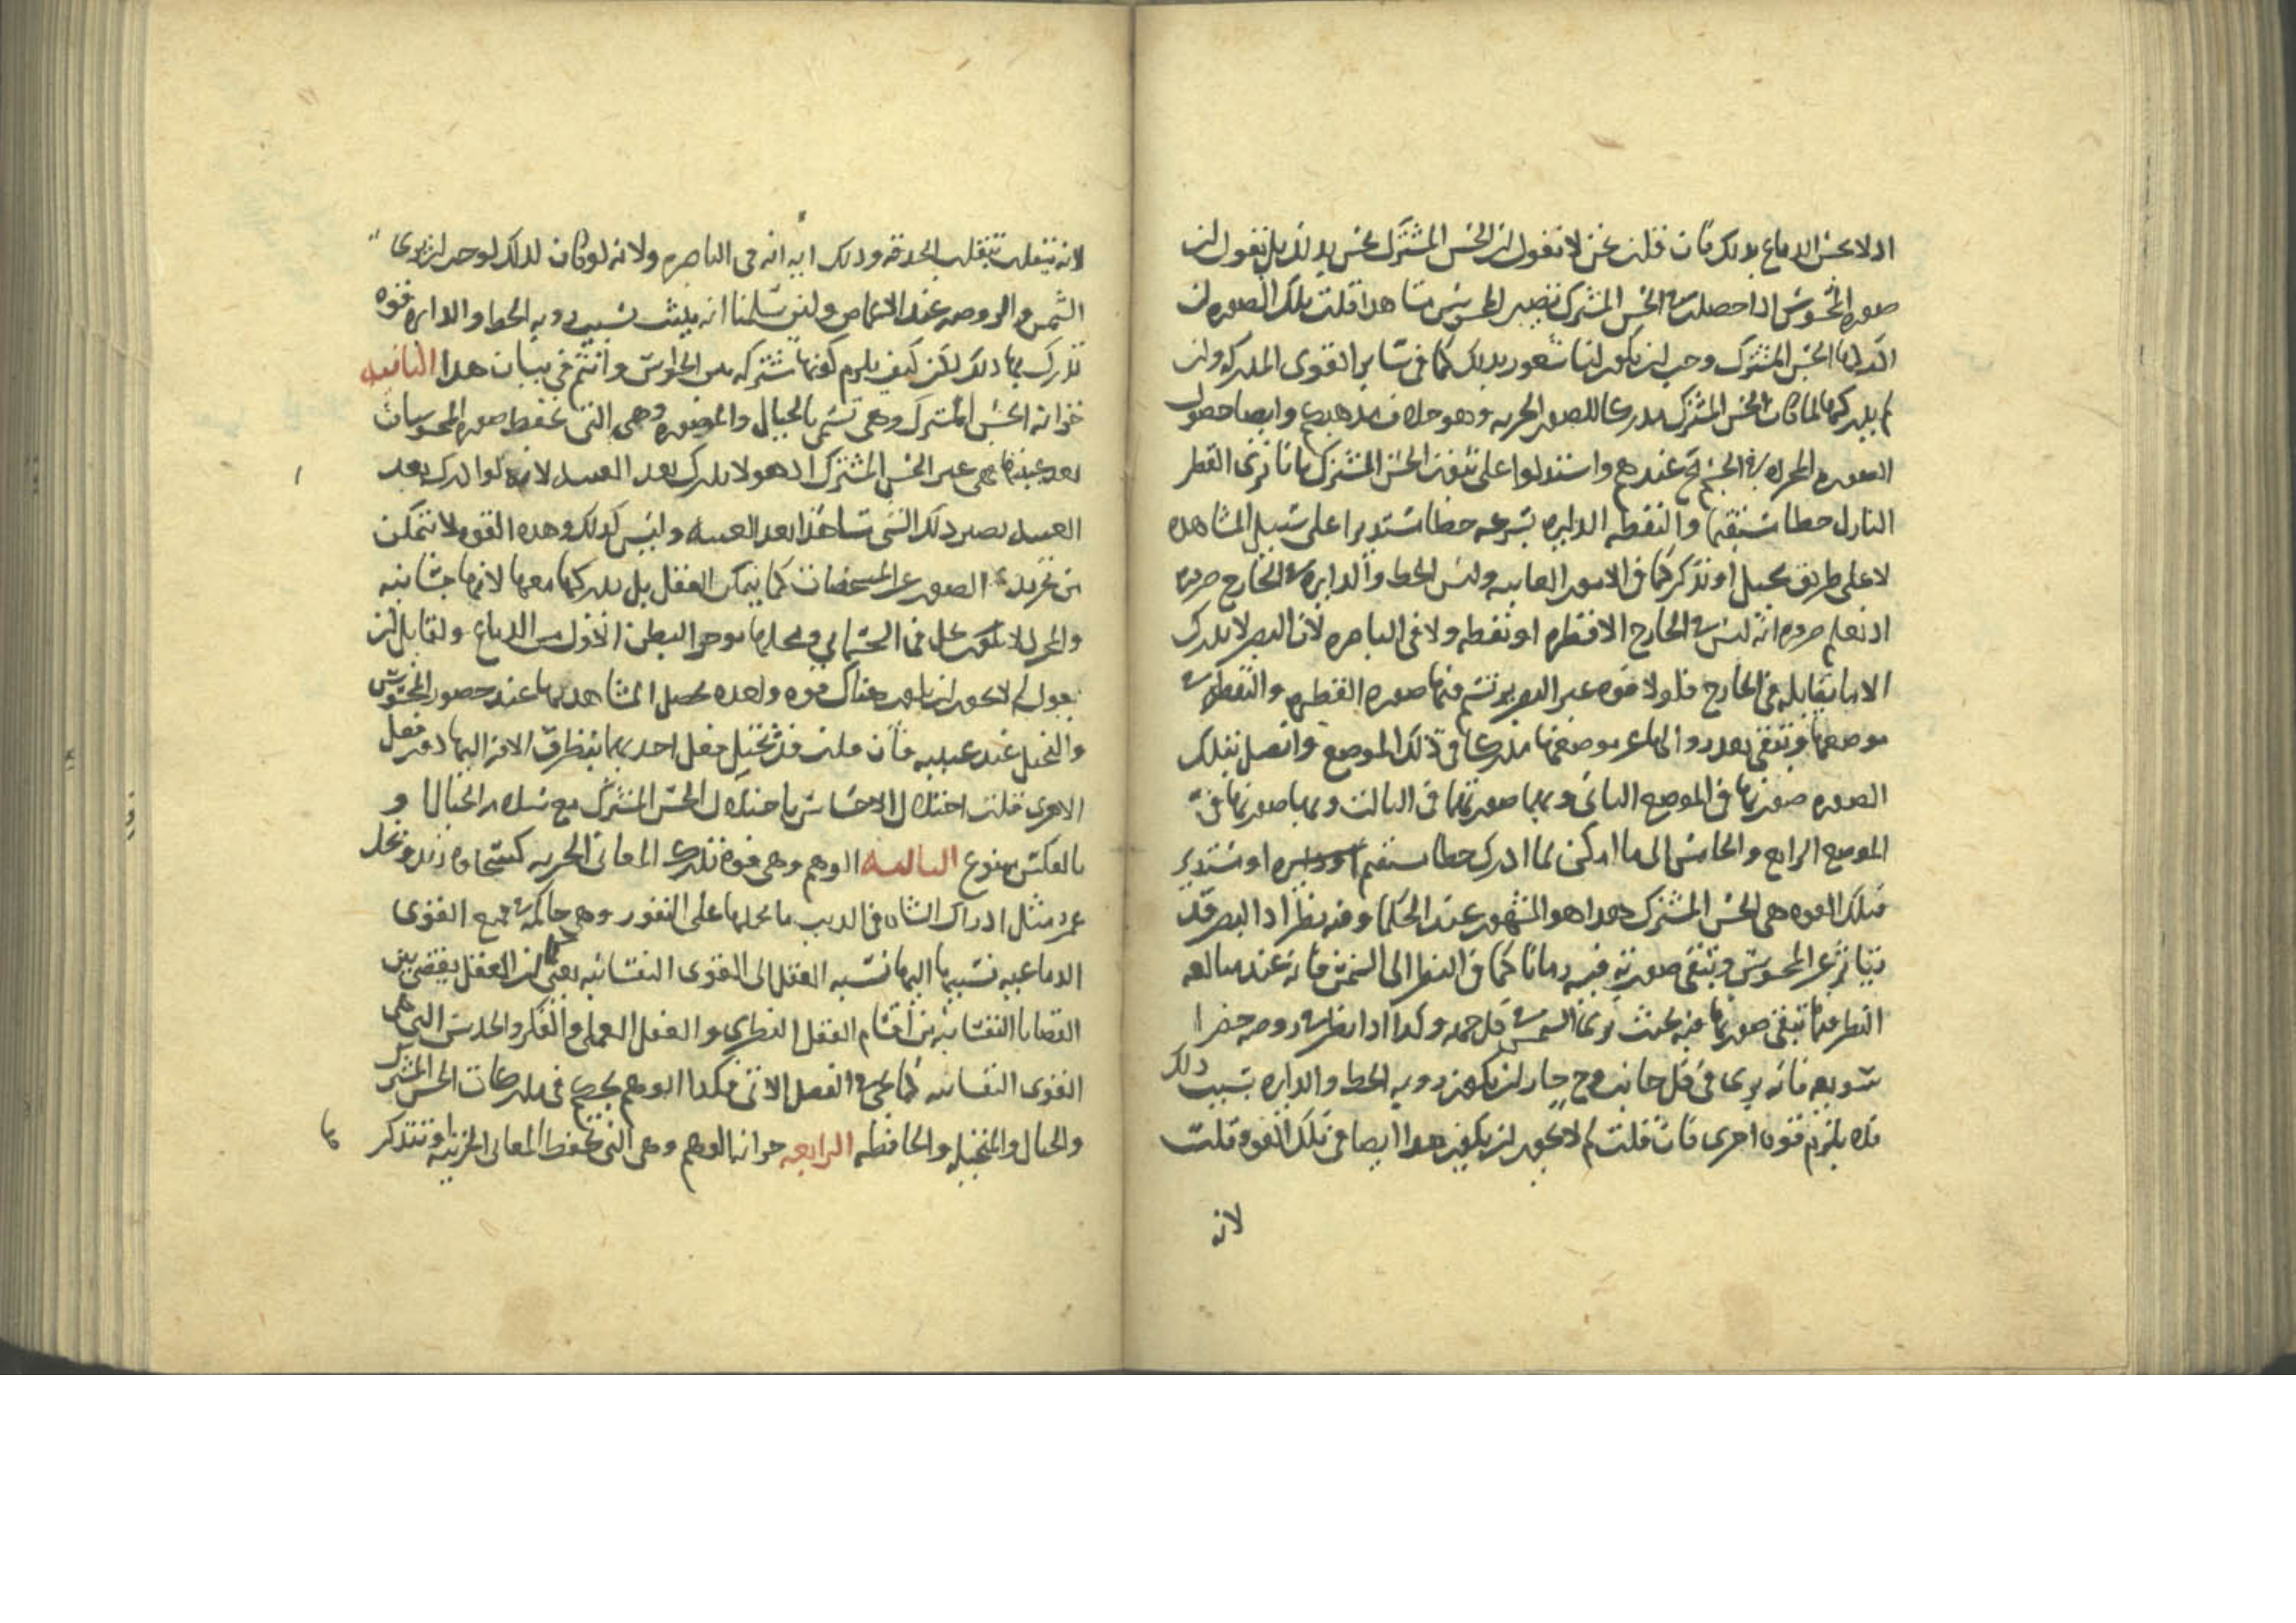 اذ لا يحس الدماغ بذلك فان قلت نحن لا نقول ان الحس المشترك يحس بل نقول ان
صورة المحسوس اذا حصلت في الحس المشترك تصير المحسوس مشاهدا قلت تلك الصورة ان
ادركها الحس المشترك وجب ان يكون لنا شعور بذلك كما في سائر القوى المدركة وان
لم يدركها لما كان الحس المشترك مدركا للصور الجزئية وهو خلاف مذهبهم وايضا حصول
الصورة في الجسم عندهم واستدلوا على ثبوت الحس المشترك بانا نرى القطر
النازل خطا مستقيما والنقطة الدايرة بسرعة خطا مستديرا على سبيل المشاهدة
لا على طريق تخيل او تذكر كما في الامور الغايبة وليس الخط والدايرة في الخارج
اذ نعلم ضرورة انه ليس في الخارج الا قطرة او نقطة ولا في الباصرة لان البصر لا يدرك
الا ما يقابله في الخارج فلولا قوة غير البصر يرتسم فيها صورة القطرة والنقطة في
موضعها وتبقى بعد زوالها عن موضعها مدركا في ذلك الموضع واتصل بتلك
الصورة صورتها في الموضع الثاني وبهما صورتها في الثالث وبها صورتها في
الموضع الرابع والخامس الى ما امكن لما ادرك خطا مستقيم او مستدير
فتلك القوة هي الحس المشترك هذا هو المشهور عند الحكما وفيه نظر اذ البصر قد
يتاثر عن المحسوس وتبقى صورته فيه زمانا كما في النظر الى الشمس فانه عند مبالغة
النظر فيها تبقى صورتها فيه بحيث يرى الشمس في كل جهة وكذا اذا نظر في روضة خضرا
فانه يرى في كل جانب وح جاز ان يكون رويه الخط والدايرة بسبب ذلك
فلا يلزم قوة اخرى فان قلت لم لا يجوز ان يكون هذا ايضا في تلك القوة قلت
لانه
لانه ينقلب بتقلب الحدقة وذلك اية انه في الباصرة ولانه لو كان لذلك لوجد ان يرى
الشمس والروضة عند الاغماض ولئن سلمنا انه يثبت بسبب رويه الخط والدايرة قوة
تدرك بها ذلك لكن كيف يلزم كونها مشتركة بين الحواس وانتم في بيان هذا الثانية
خزانة الحس المشترك وهي تسمى بالخيال والمصورة وهي التي تحفظ صورة المحسوسات
بعد غيبتها هي غير الحس المشترك اذ هو لا يدرك بعد الغيبة لانه لو ادرك بعد
الغيبة لصير ذلك الشي مشاهدا بعد الغيبة وليس كذلك وهذه القوة لا تتمكن
من تجريد الصور عن المشخصات كما يمكن العقل بل يدركها معها لانها جسمانية
والمجرد لا يحل في الجسماني ومحلها موخر البطن الاول من الدماغ ولقايل ان
يقول لم لا يجوز ان يكون هناك قوة واحدة يحصل المشاهدة بها عند حضور المحسوس
والتخيل عند غيبته فان قلت قد تختل فعل احديهما بتطرق الافة اليها دون فعل
الاخرى قلت اختلال الاحساس باختلال الحس المشترك مع سلامة الخيال و
بالعكس ممنوع الثالثة الوهم وهي قوة تدرك المعاني الجزئية كسخاوة زيد وبخل
عمرو مثل ادراك الشاة في الذيب ما يحملها على النفور وهي حاكمة في جميع القوى
الدماغية نسبتها اليها نسبة العقل الى القوى النفسانية يعني كما ان العقل يقضي بين
القضايا النفسانية من اقسام العقل النظري والعقل العملي والفكر والحدس التي هي
القوى النفسانية كما يجي في الفصل الاتي فكذا الوهم يحكم في مدركات الحس المشترك
والخيال والمتخيلة والحافظة الرابعة خزانة الوهم وهي التي تحفظ المعاني الجزئية وتتذكر